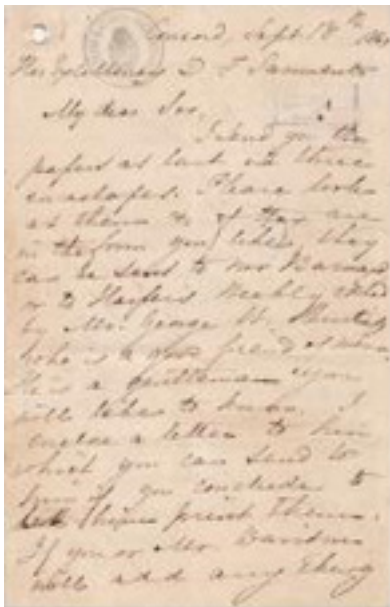 Concord, Sept. 18th
His Excellency D. F. Sarmiento
My dear Sir,
I send you the
papers at last in three
envelopes. Please look
at them & if they are
in the form you like, they
can be sent to Mr Barnard
or to Harpers Weekly
by Mr. George W.
who is a good friend of mine
He is a gentleman you
will like to know. I
enclose a letter to him
which you can send to
him if you conclude to
let them print them.
If you or Mr Davison
will add any thing